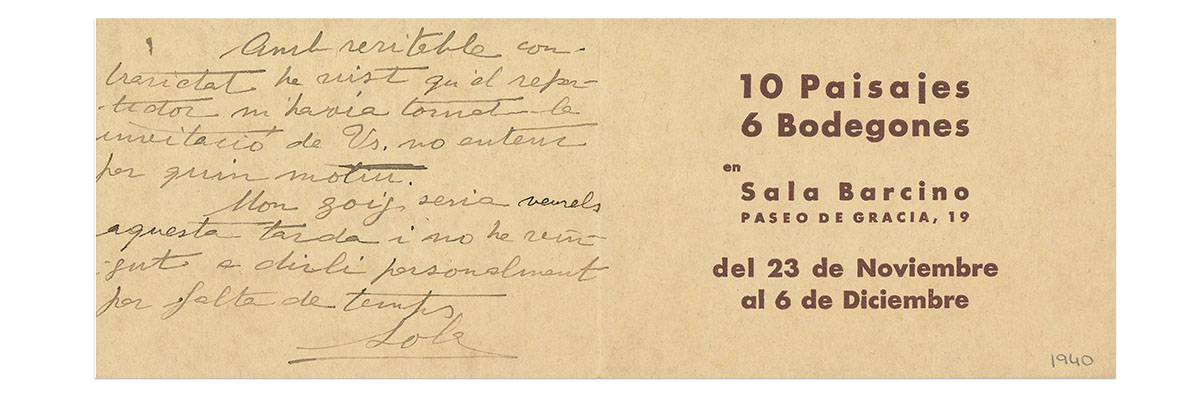 Amb veritable con-
trarietat he vist qu'el repar-
tidor m'havia tornat la
invitació de Vs. no entenc
per quin motiu.
Mon goig seria veurels
aquesta tarda i no he vin-
gut a dirli personalment
per falta de temps
Lola
10 Paisajes
6 Bodegones
en
Sala Barcino
PASEO DE GRACIA, 19
del 23 de Noviembre
al 6 de Diciembre
1940